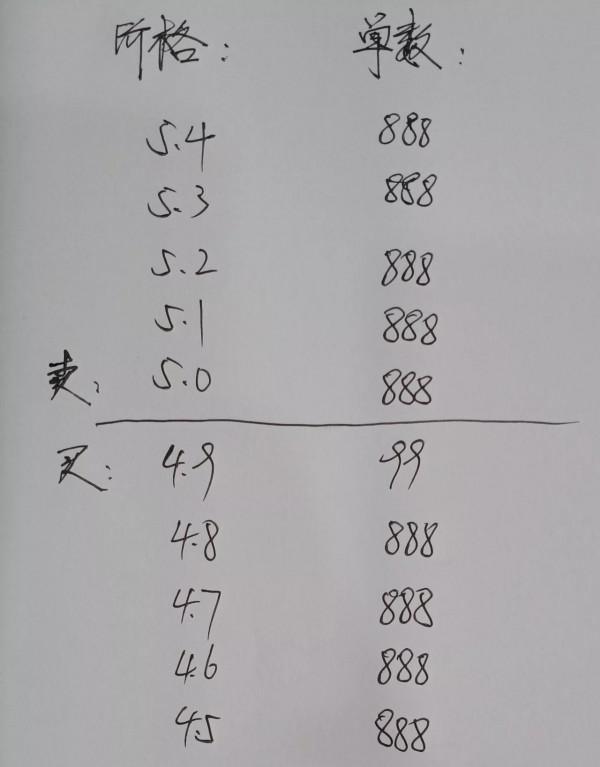 价格： 单数：
5.4 888
5.3 888
5.2 888
5.1 888
卖： 5.0 888
买： 4.9 99
4.8 888
4.7 888
4.6 888
4.5 888